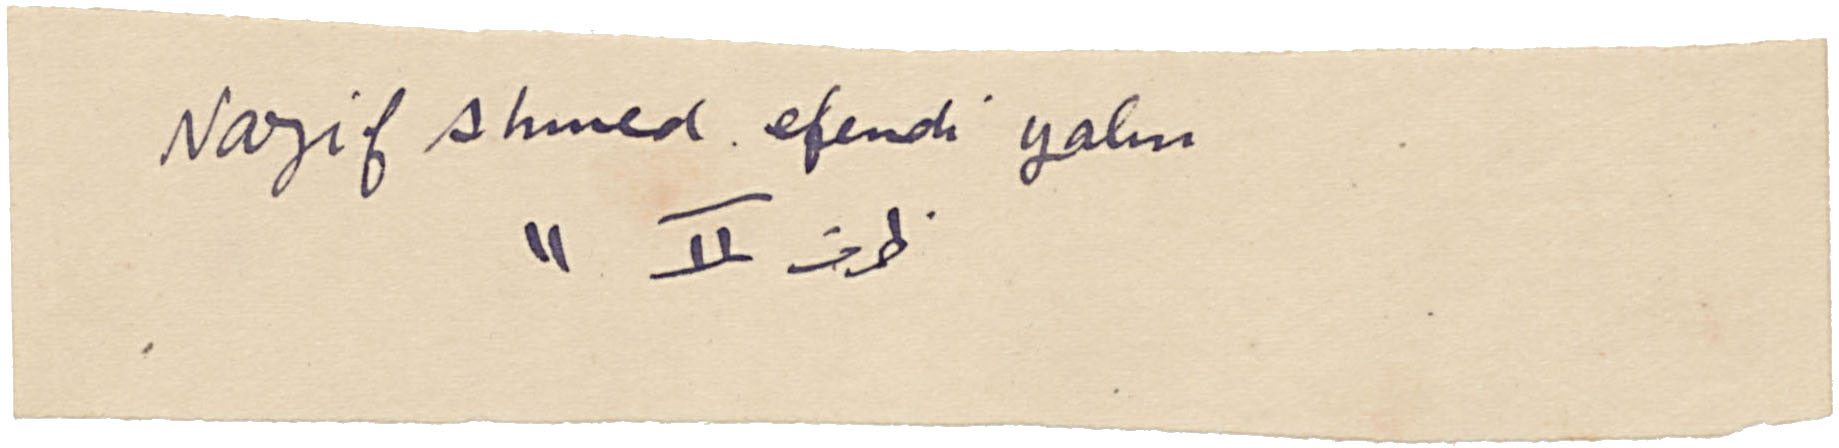 Nazif Ahmed efendi yalın
" II